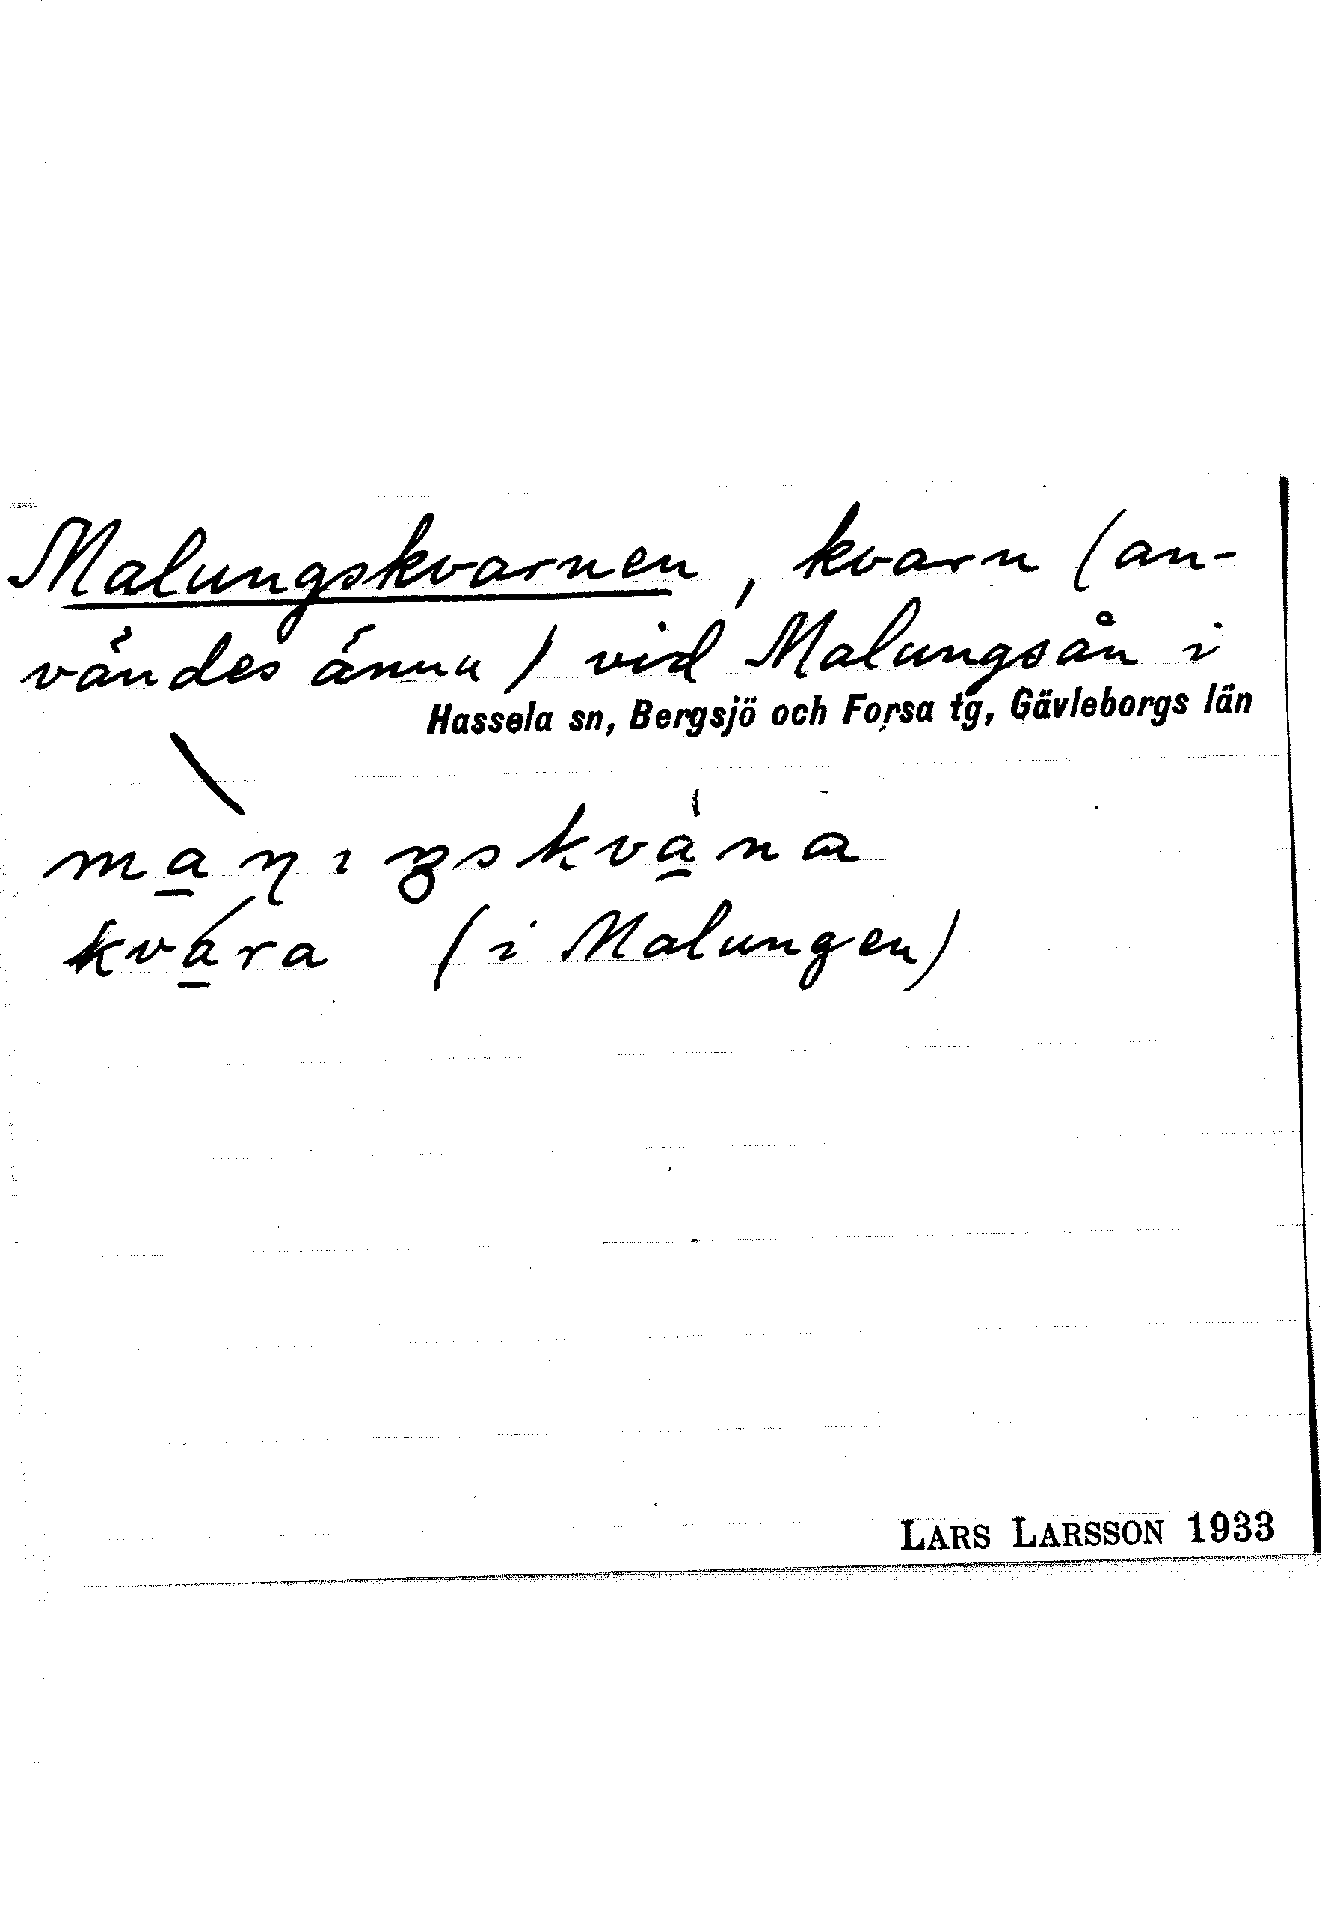 Malungskvarnen, kvarn (an-
vändes ännu) vid Malungsån i
Hassela sn, Bergsjö och Forsa tg, Gävleborgs län
kvara (i Malungen)
LARS LARSSON 1933